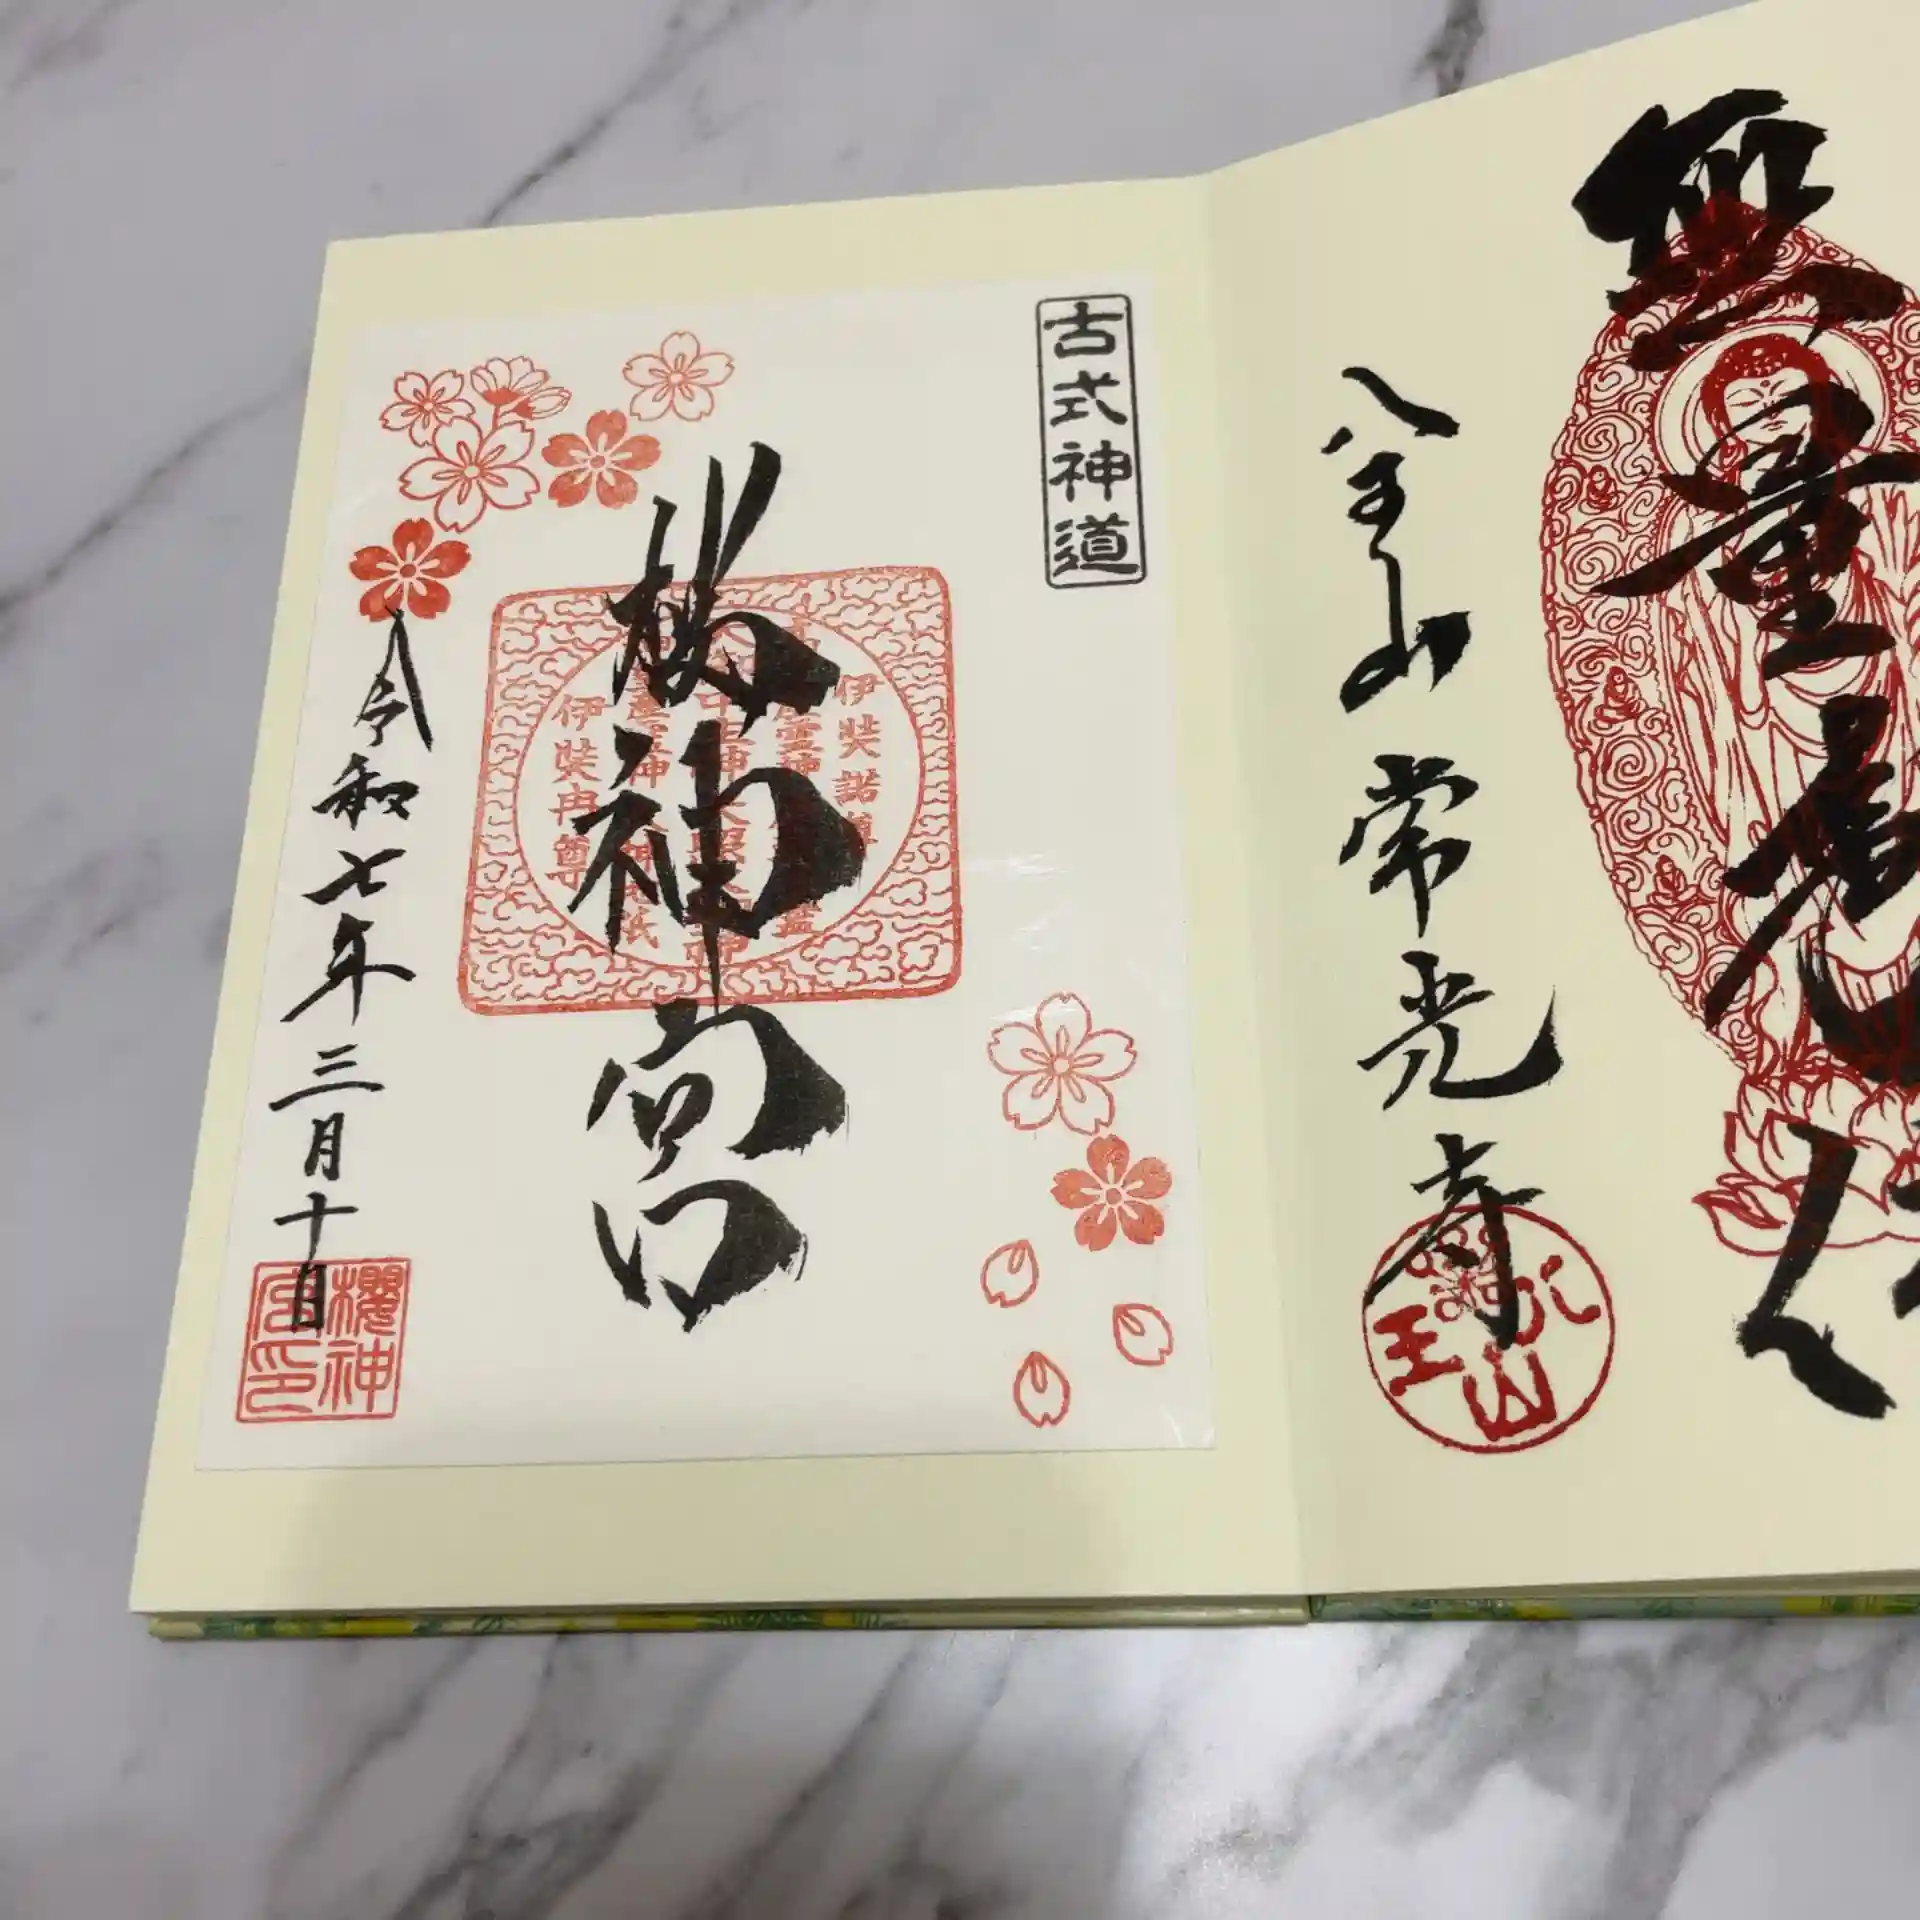 無量寿仏
八王山
常光寺
八王山
古式神道
桜神宮
伊弉諾尊
伊弉冉尊
令和七年三月十日
櫻神
宮印